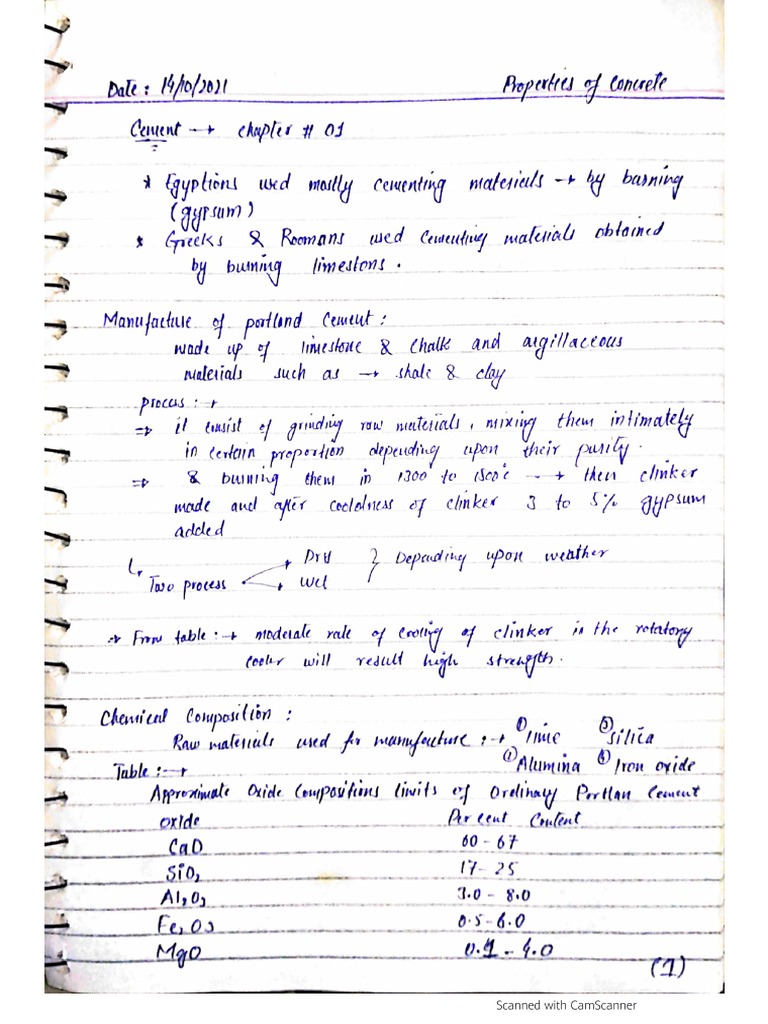 Date: 14/10/2021 Properties of Concrete
Cement → chapter # 01
* Egyptions used mostly cementing materials → by burning
(gypsum)
* Greeks & Roomans used cementing materials obtained
by burning limestons.
Manufacture of portland Cement:
made up of limestone & Chalk and argillaceous
materials such as → shale & clay
process: →
⇒ it consist of grinding raw materials, mixing them intimately
in certain proportion depending upon their purity.
⇒ & burning them in 1300 to 1500°c → then clinker
made and after cooldness of clinker 3 to 5% gypsum
added
Two process Dry Wet } Depending upon weather
⇒ From table: → moderate rate of cooling of clinker in the rotatory
cooler will result high strength.
Chemical Composition:
Raw materials used for manufacture: → ① lime ③ silica
② Alumina ④ Iron oxide
Table: →
Approximate Oxide Compositions limits of Ordinary Portlan Cement
Oxide Per cent Content
CaO 60 - 67
SiO2 17 - 25
Al2O3 3.0 - 8.0
Fe2O3 0.5 - 6.0
MgO 0.1 - 4.0
(1)
Scanned with CamScanner